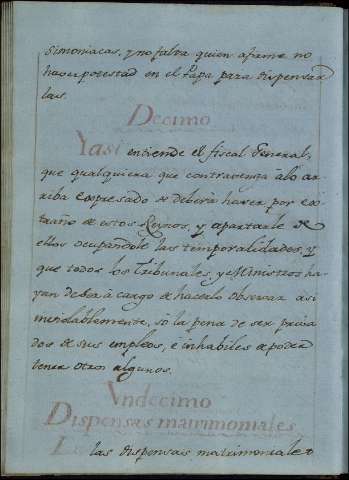 Simoniacas, y no falta quien afirme no
haver potestad en el Papa para dispensar
las.
Decimo
Y asi entiende el fiscal General,
que qualquiera que contravenga à lo ar
riba expresado se deberà haver por ex
traño de estos Reynos, y apartarle de
ellos ocupandole las temporalidades, y
que todos los Tribunales, y Ministros ha
yan de estar à cargo de hacerlo observar asi
inviolablemente, sò la pena de ser priva
dos de sus empleos, e inhabiles de poder
tener otros algunos.
Undecimo
Dispensas matrimoniales
las dispensas matrimoniales